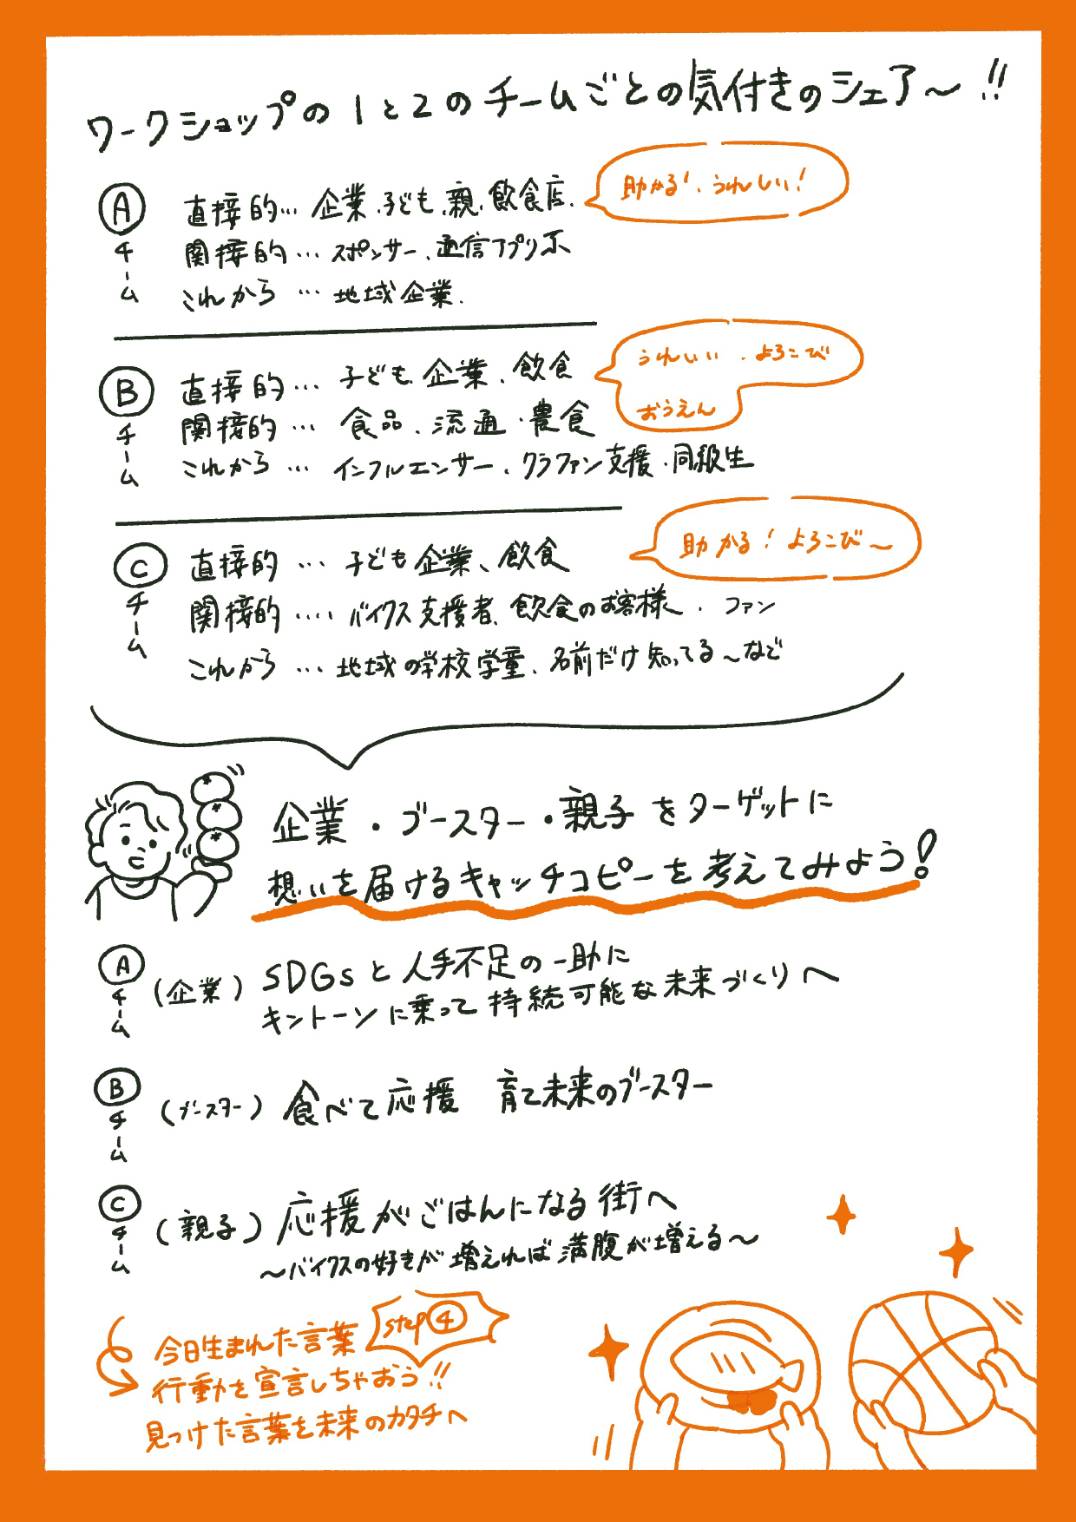 ワークショップの1と2のチームごとの気付きのシェア〜!!
Aチーム
直接的… 企業、子ども、親、飲食店、
助かる!、うれしい!
関接的… スポンサー、通信アプリ系
これから … 地域企業、
Bチーム
直接的… 子ども、企業、飲食
うれしい、よろこび
おうえん
関接的… 食品、流通、農食
これから … インフルエンサー、クラファン支援、同級生
Cチーム
直接的 … 子ども 企業、飲食
助かる! よろこび〜
関接的 … バイクス支援者、飲食のお客様、ファン
これから … 地域の学校学童、名前だけ知ってる〜など
企業・ブースター・親子をターゲットに
想いを届けるキャッチコピーを考えてみよう!
Aチーム
(企業) SDGsと人手不足の一助に
キントーンに乗って持続可能な未来づくりへ
Bチーム
(ブースター) 食べて応援 育て未来のブースター
Cチーム
(親子) 応援がごはんになる街へ
〜バイクスの好きが増えれば満腹が増える〜
今日生まれた言葉 step④
行動を宣言しちゃおう!!
見つけた言葉を未来のカタチへ